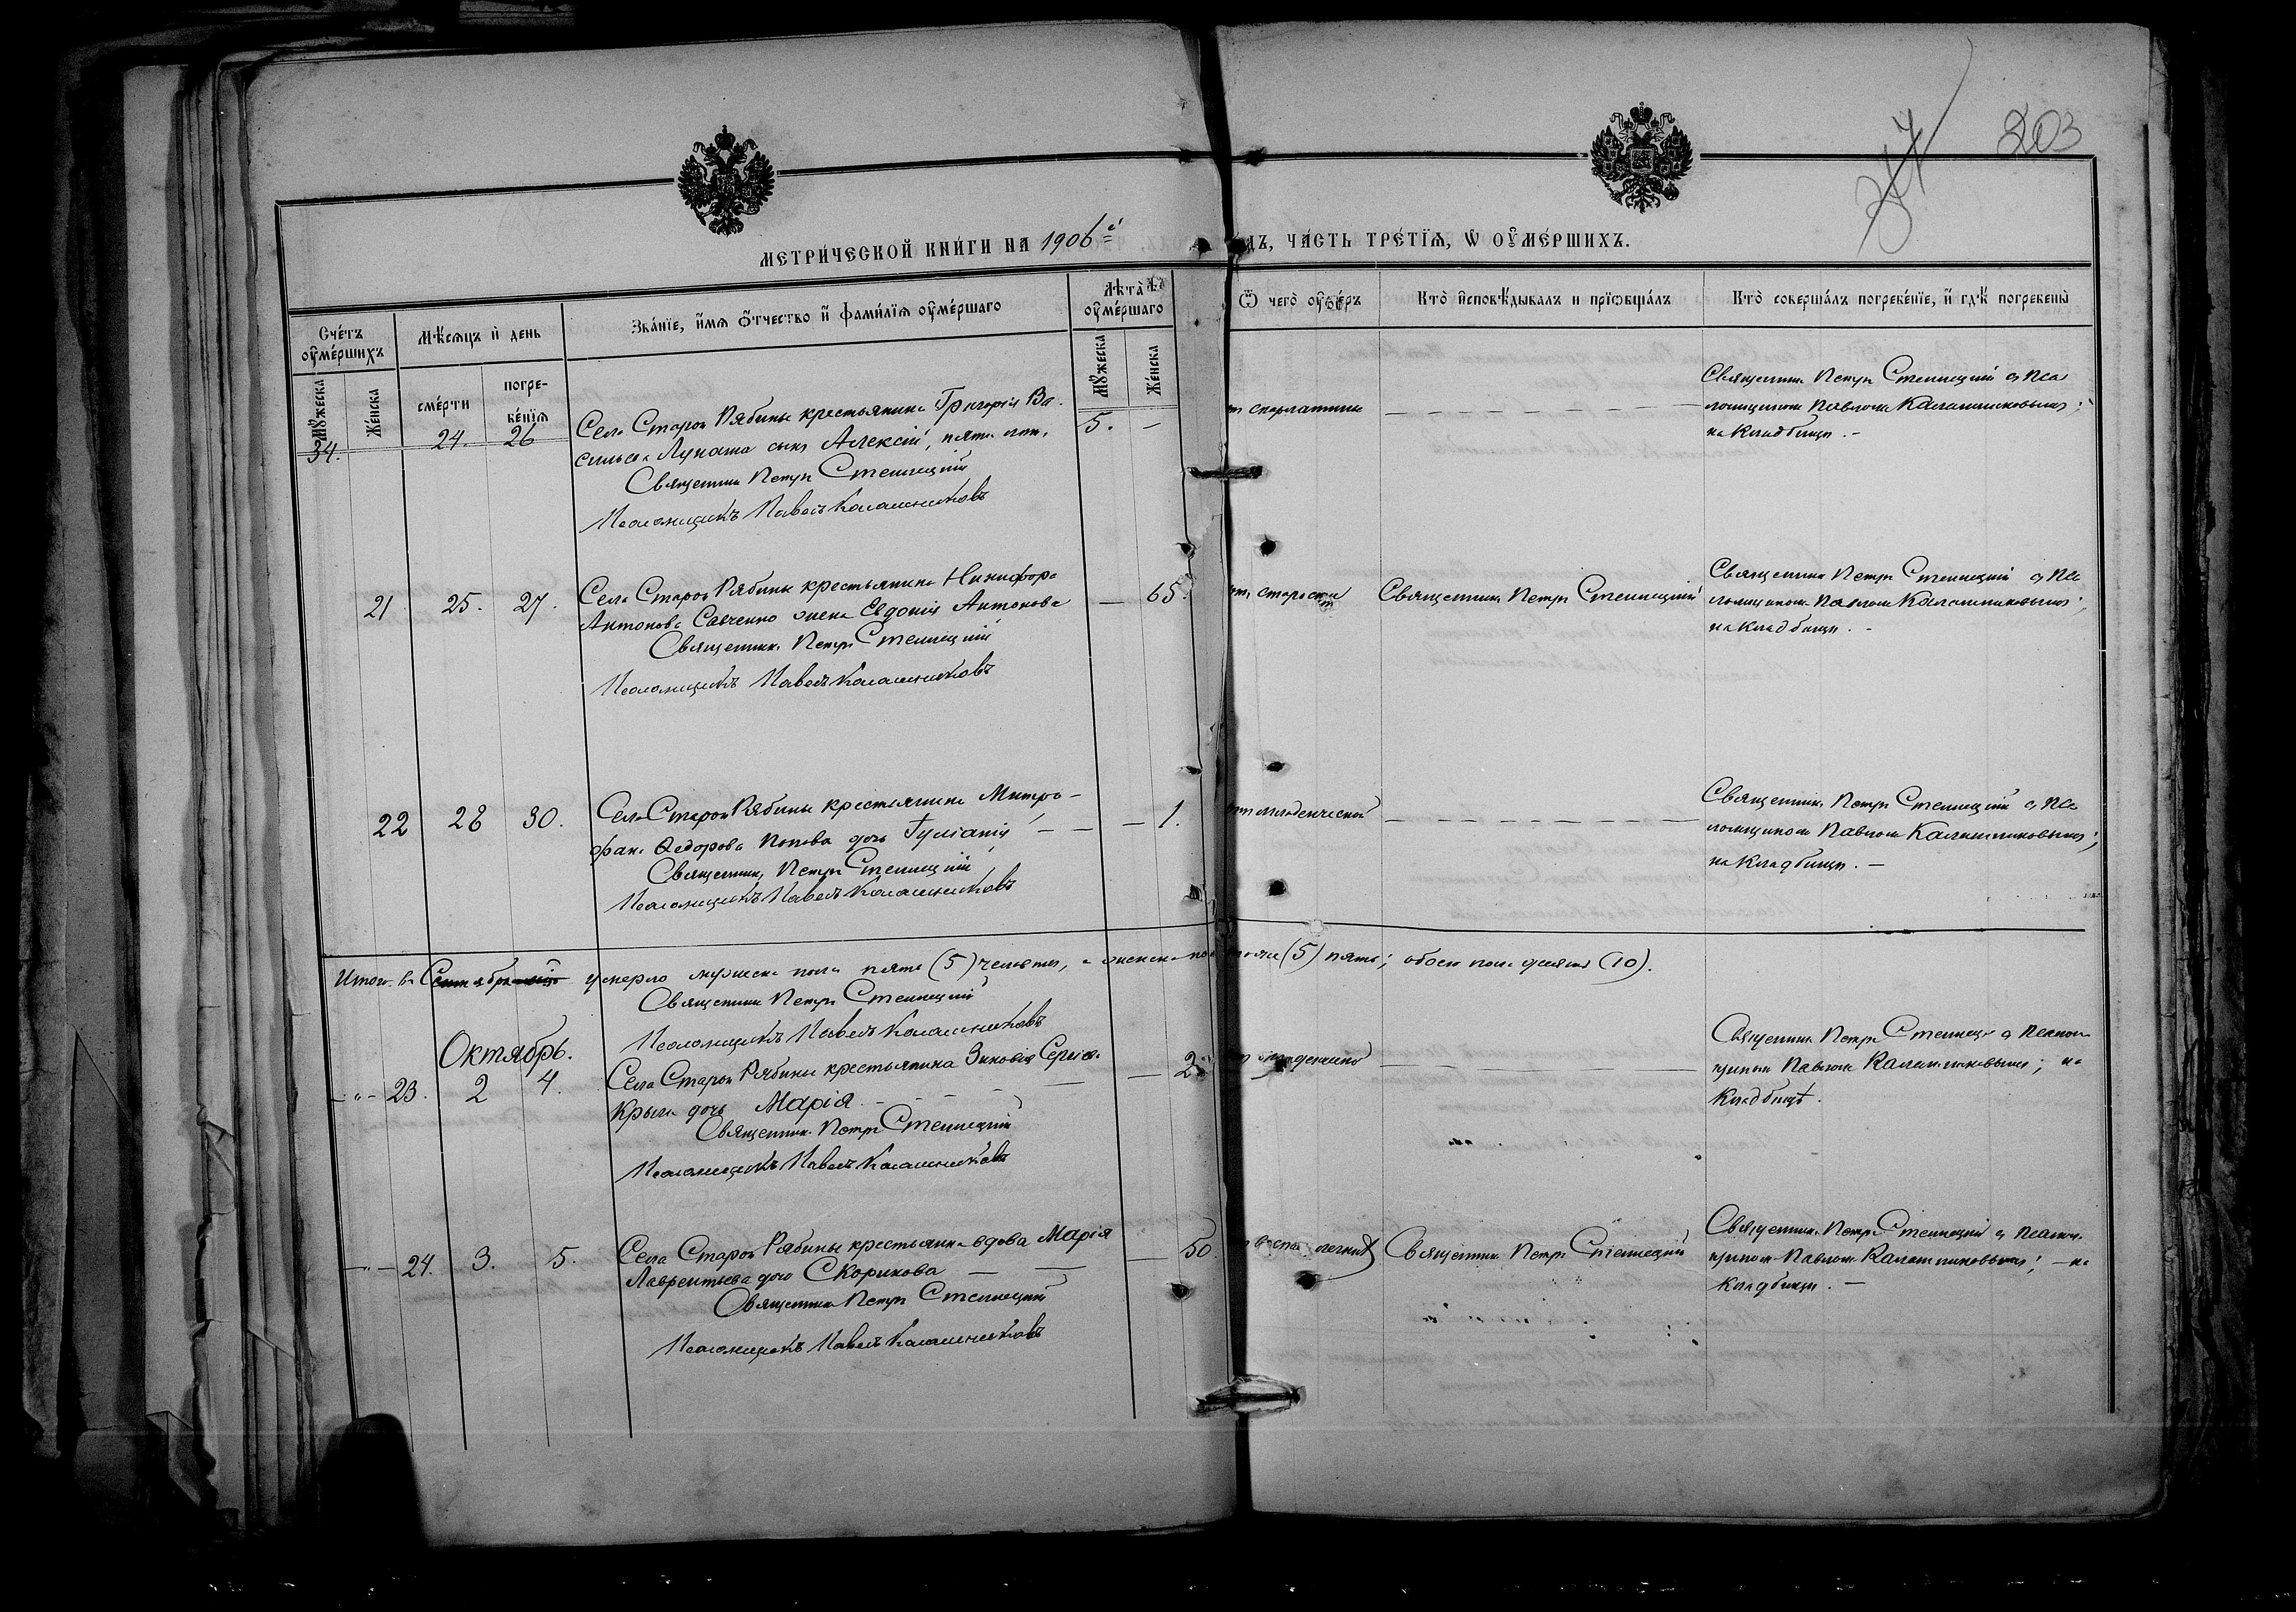 203
МЕТРИ́ЧЕСКОЙ КНИ́ГИ НА 1906й
ДЪ, ЧА́СТЬ ТРЕ́ТЇѦ, Ѡ ОУМЕ́РШИХЪ.
Сче́тъ оуме́ршихъ
Мѣ́сѧцъ и҆ день
Зва́нїе, и҆́мѧ ѻ҆́тчество и҆ фами́лїѧ оуме́ршагѡ
Лѣта̀ оуме́ршаго
Ѿ чегѡ̀ оу́меръ
Кто̀ и҆сповѣ́дывалъ и прїѡбща́лъ
Кто̀ соверша́лъ погребе́нїе, и҆ гдѣ̀ погребены̀
Мꙋ́жеска
Же́нска
сме́рти
погребе́нїѧ
Мꙋ́жеска
Же́нска
34.
24.
26
Села Старой Рябины крестьянина Григорія Ва-
сильева Лукаша сынъ Алексій, пяти лѣт.
Священникъ Петръ Стеллецкій
Псаломщикъ Павелъ Калашниковъ
5. —
отъ скарлатины
Священникъ Петръ Стеллецкій съ пса
ломщикомъ Павломъ Калашниковымъ;
на кладбищѣ. —
21
25.
27.
Села Старой Рябины крестьянина Никифора
Антонова Савченко жена Евдокія Антонова
Священникъ Петръ Стеллецкій
Псаломщикъ Павелъ Калашниковъ
— 65.
отъ старости
Священникъ Петръ Стеллецкій
Священникъ Петръ Стеллецкій съ пса
ломщикомъ Павломъ Калашниковымъ;
на кладбищѣ. —
22
28
30.
Села Старой Рябины крестьянина Митро-
фана Ѳедорова Попова дочь Іуліанія
Священникъ Петръ Стеллецкій
Псаломщикъ Павелъ Калашниковъ
— 1.
отъ младенческой
Священникъ Петръ Стеллецкій съ пса
ломщикомъ Павломъ Калашниковымъ;
на кладбищѣ. —
Итого въ Сентябрѣ умерло мужеска пола пять (5) человѣкъ, а женска пола (5) пять; обоего пола десять (10).
Священникъ Петръ Стеллецкій
Псаломщикъ Павелъ Калашниковъ
Октябрь.
23.
2
4.
Села Старой Рябины крестьянина Зиновія Сергіева
Крыга дочь Марія. —
Священникъ Петръ Стеллецкій
Псаломщикъ Павелъ Калашниковъ
— 2
младенческой
Священникъ Петръ Стеллецкій съ псалом-
щикомъ Павломъ Калашниковымъ; на
кладбищѣ.
24.
3.
5.
Села Старой Рябины крестьянка вдова Марія
Лаврентьева дочь Скорикова
Священникъ Петръ Стеллецкій
Псаломщикъ Павелъ Калашниковъ
— 50.
легкихъ
Священникъ Петръ Стеллецкій
Священникъ Петръ Стеллецкій съ псалом-
щикомъ Павломъ Калашниковымъ; — на
кладбищѣ. —